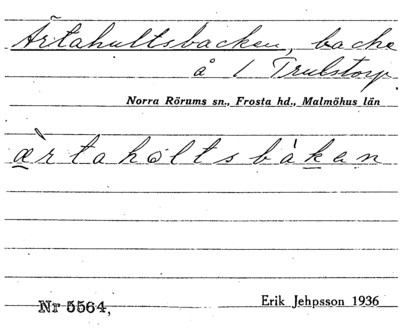 Ärtahultsbacken, backe
å 1 Trulstorp
Norra Rörums sn., Frosta hd., Malmöhus län
æ̀rtahòltsbàkæn
Nr 5564,
Erik Jehpsson 1936